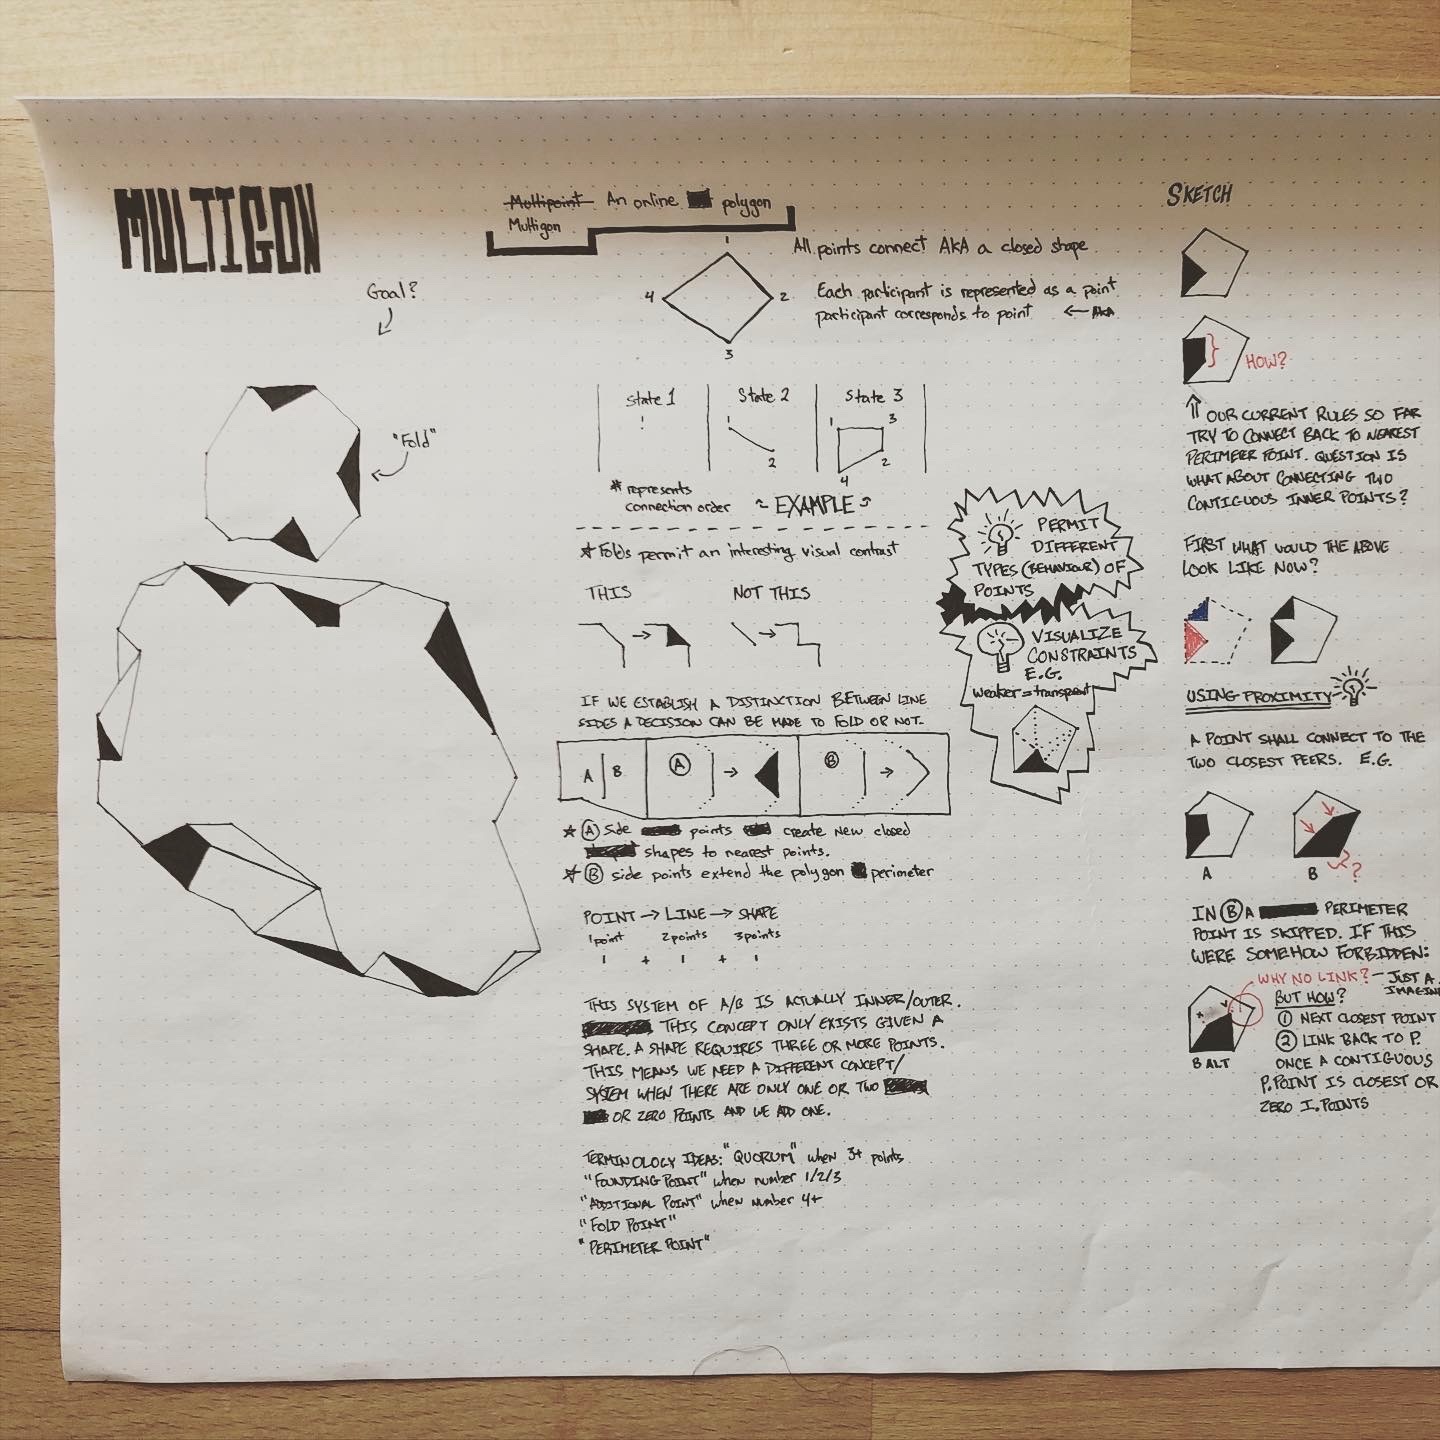 MULTIGON
Goal?
"Fold"
Multipoint An online polygon
Multigon
All points connect AKA a closed shape
1
4
2
3
Each participant is represented as a point
participant corresponds to point ← AKA
State 1
State 2
State 3
1
1
2
1
3
2
4
* represents
connection order
~ EXAMPLE ~
* Folds permit an interesting visual contrast
THIS
NOT THIS
IF WE ESTABLISH A DISTINCTION BETWEEN LINE
SIDES A DECISION CAN BE MADE TO FOLD OR NOT.
A B
A
B
* A side points create new closed
shapes to nearest points.
* B side points extend the polygon perimeter
POINT → LINE → SHAPE
1 point 2 points 3 points
1 + 1 + 1
THIS SYSTEM OF A/B IS ACTUALLY INNER/OUTER.
THIS CONCEPT ONLY EXISTS GIVEN A
SHAPE. A SHAPE REQUIRES THREE OR MORE POINTS.
THIS MEANS WE NEED A DIFFERENT CONCEPT/
SYSTEM WHEN THERE ARE ONLY ONE OR TWO
OR ZERO POINTS AND WE ADD ONE.
TERMINOLOGY IDEAS: "QUORUM" when 3+ points
"FOUNDING POINT" when number 1/2/3
"ADDITIONAL POINT" when number 4+
"FOLD POINT"
"PERIMETER POINT"
PERMIT
DIFFERENT
TYPES (BEHAVIOUR) OF
POINTS
VISUALIZE
CONSTRAINTS
E.G.
weaker = transparent
SKETCH
HOW?
OUR CURRENT RULES SO FAR
TRY TO CONNECT BACK TO NEAREST
PERIMETER POINT. QUESTION IS
WHAT ABOUT CONNECTING TWO
CONTIGUOUS INNER POINTS?
FIRST WHAT WOULD THE ABOVE
LOOK LIKE NOW?
USING PROXIMITY
A POINT SHALL CONNECT TO THE
TWO CLOSEST PEERS. E.G.
A
B
?
IN B A PERIMETER
POINT IS SKIPPED. IF THIS
WERE SOMEHOW FORBIDDEN:
WHY NO LINK? - JUST A
BUT HOW?
1 NEXT CLOSEST POINT
2 LINK BACK TO P.
B ALT
ONCE A CONTIGUOUS
P.POINT IS CLOSEST OR
ZERO I.POINTS